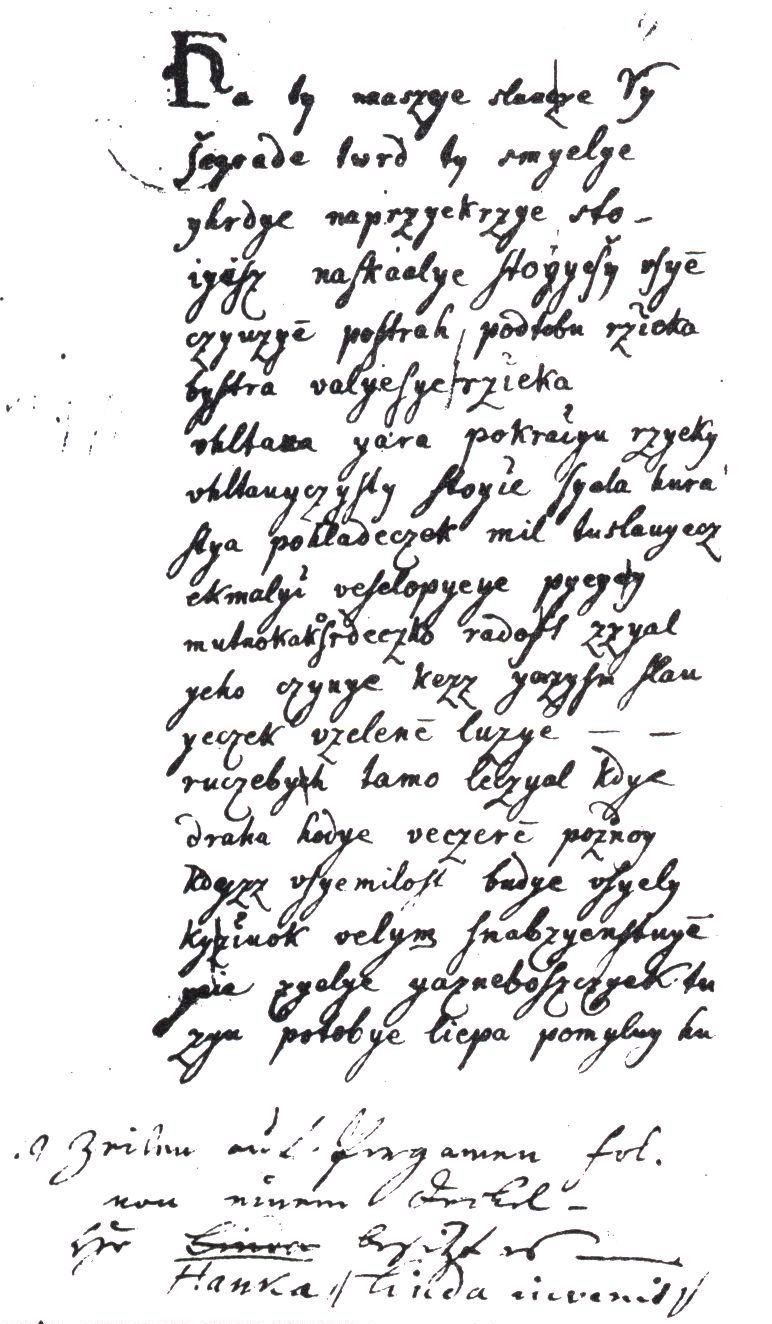 Ha ty naszye sluneze Vy
šegrade twrd ty smyelye
yhrdye naprzyekrzye sto-
igiesz naskaalye stoyyesy vsyē
czyuzyē postrah podtobu rzieka
bystra valyesye rzieka
vhltaua yara pokraigu rzyeky
vhltauyczysty stoyie syela hura
stya pohladeczek mil tuslauyecz
ekmalyi veselopyeye pyegey
mutnokak srdeczko radost zzyal
yeho czynye kezz yazysm slau
yeczek vzelenē luzye — —
ruczebych tamo leczyal kdye
draha hodye veczerē poznoy
kdyzz vsyemilost budye vsyely
kyziuok velym snabzyenstuyē
zyelye yazneboszczyek tu
zyu potobye liepa pomyluy hu
Zeilen auf Pergamen fol.
von einem Deckel -
Hr besitzt es
Hanka Linda invenit